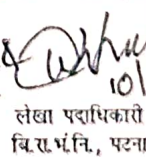 101
लेखा पदाधिकारी
बि.रा.भं.नि., पटना